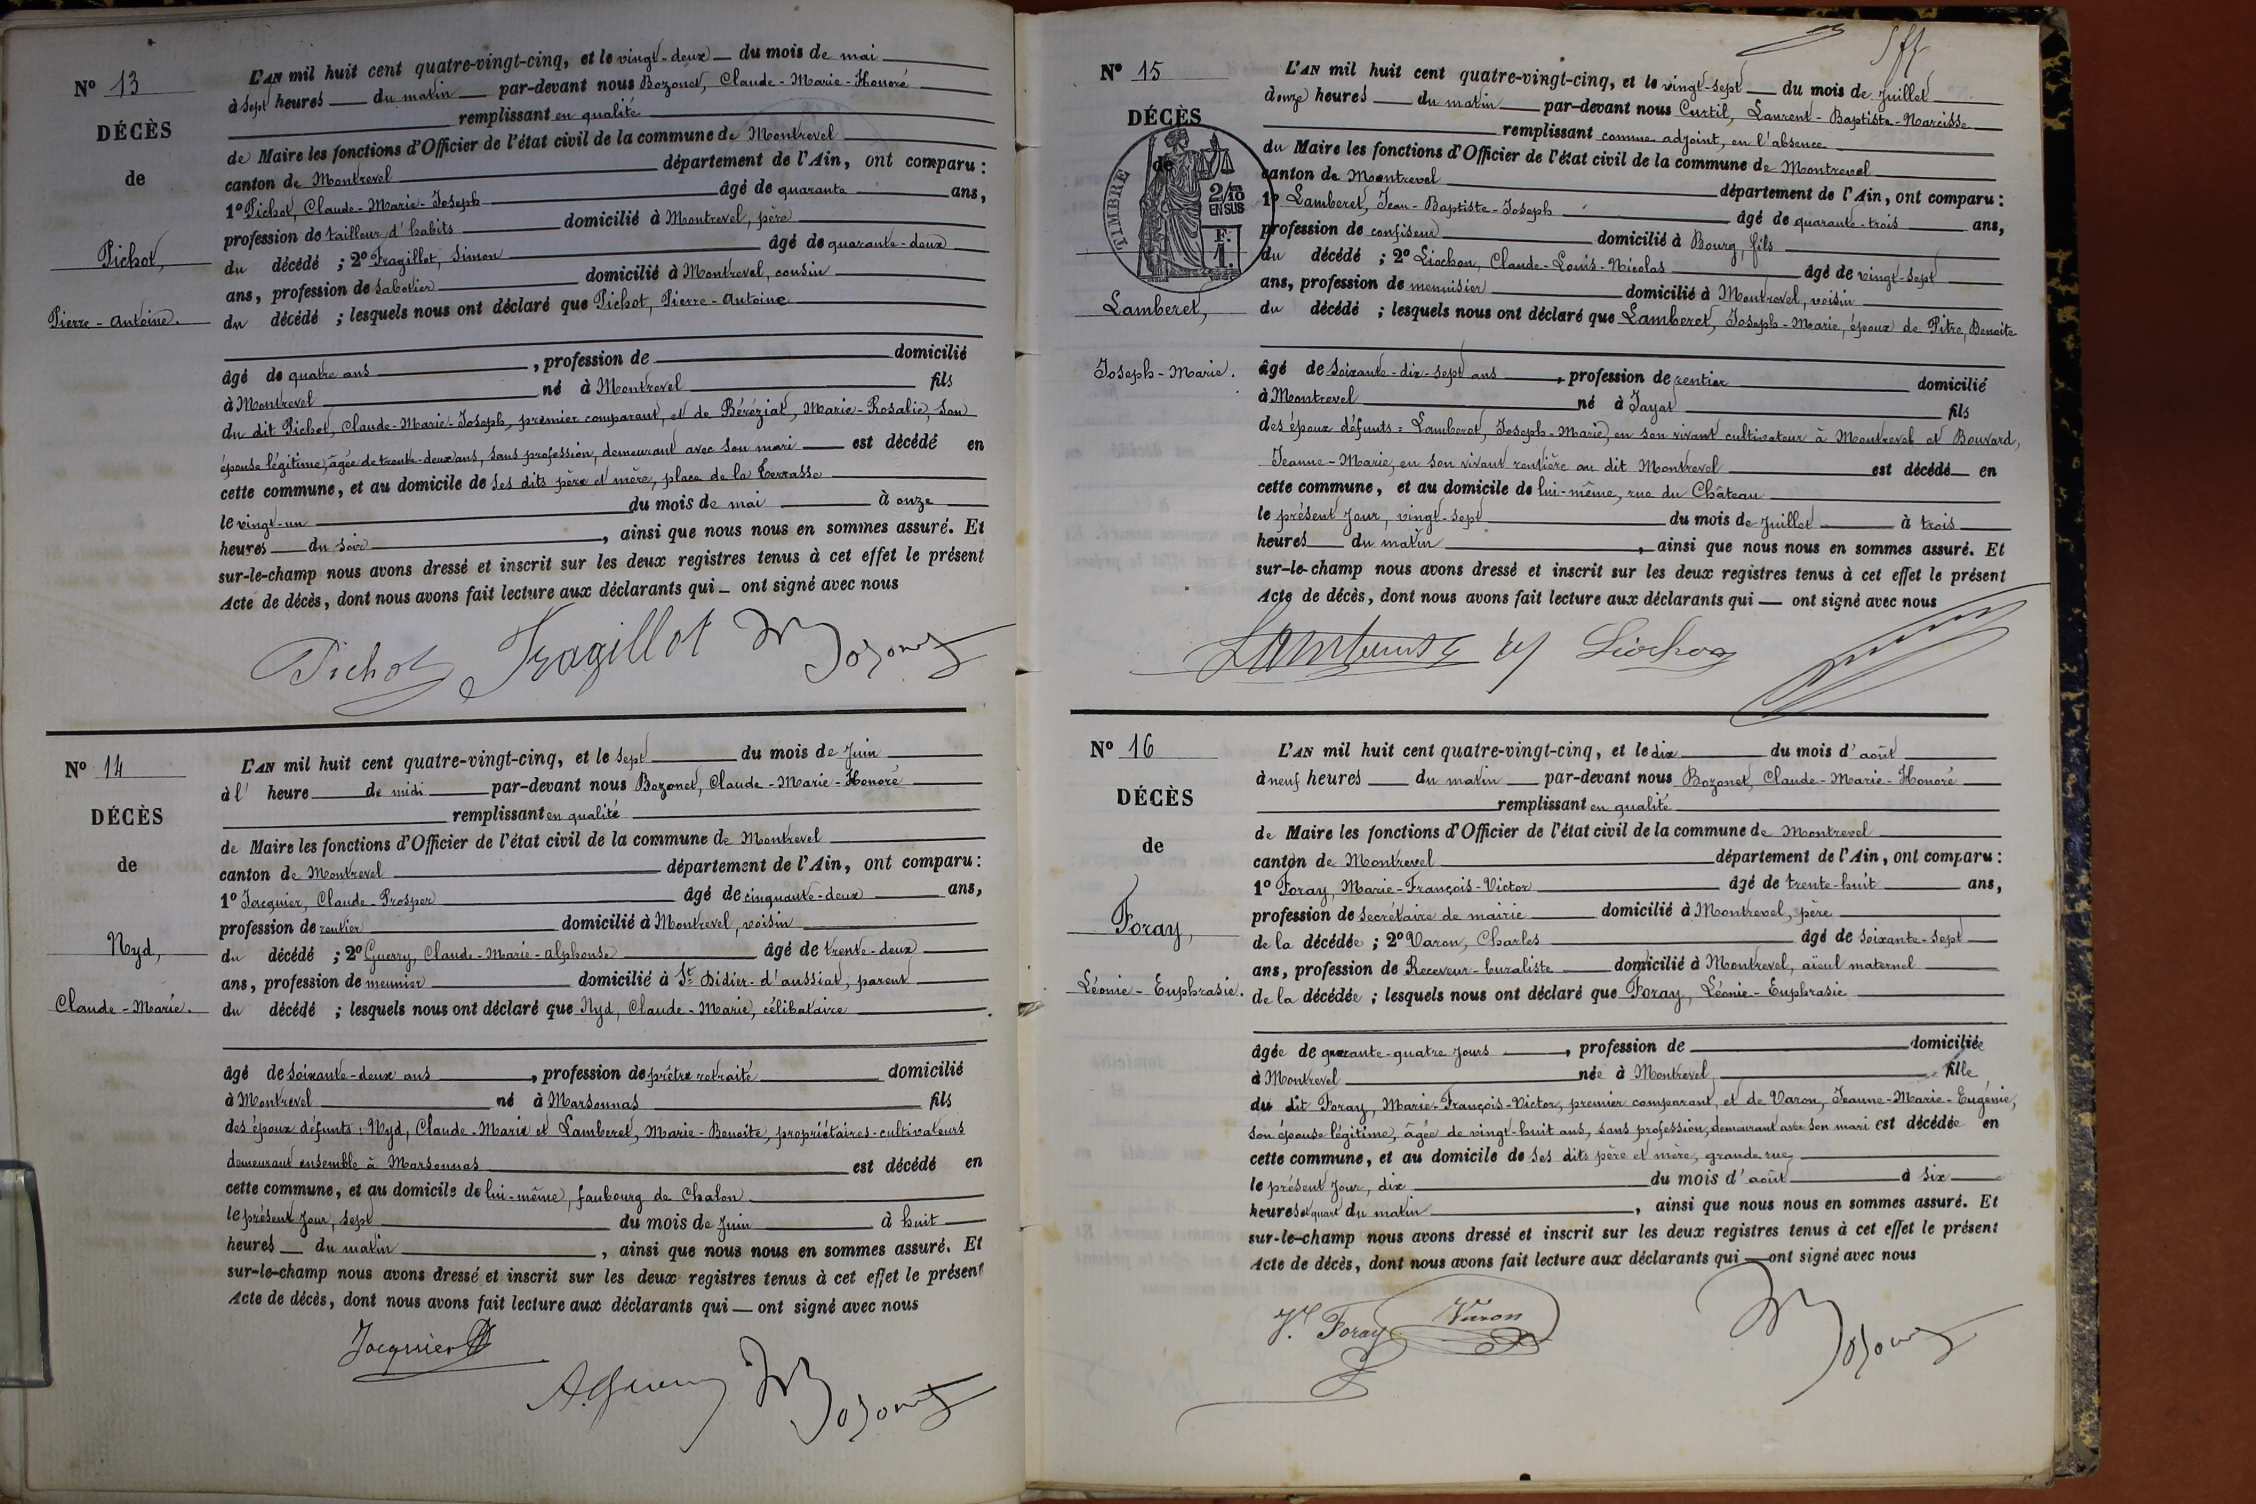 Nº 13
DÉCÈS
de
Pichot,
Pierre-Antoine.
L'AN mil huit cent quatre-vingt-cinq, et le vingt-deux du mois de mai
à sept heures du matin par-devant nous Bozonet, Claude-Marie-Honoré
remplissant en qualité
de Maire les fonctions d'Officier de l'état civil de la commune de Montrevel
canton de Montrevel département de l'Ain, ont comparu :
1º Pichot, Claude-Marie-Joseph âgé de quarante ans,
profession de tailleur d'habits domicilié à Montrevel, père
du décédé ; 2º Fragillot, Simon âgé de quarante-deux
ans, profession de sabotier domicilié à Montrevel, cousin
du décédé ; lesquels nous ont déclaré que Pichot, Pierre-Antoine
âgé de quatre ans , profession de domicilié
à Montrevel né à Montrevel fils
du dit Pichot, Claude-Marie-Joseph, premier comparant, et de Béréziat, Marie-Rosalie, son
épouse légitime, âgée de trente-deux ans, sans profession, demeurant avec son mari est décédé en
cette commune, et au domicile de ses dits père et mère, place de la Terrasse
le vingt-un du mois de mai à onze
heures du soir , ainsi que nous nous en sommes assuré. Et
sur-le-champ nous avons dressé et inscrit sur les deux registres tenus à cet effet le présent
Acte de décès, dont nous avons fait lecture aux déclarants qui ont signé avec nous
Pichot Fragillot Bozonet
Nº 14
DÉCÈS
de
Nyd,
Claude-Marie.
L'AN mil huit cent quatre-vingt-cinq, et le sept du mois de Juin
à l' heure de midi par-devant nous Bozonet, Claude-Marie-Honoré
remplissant en qualité
de Maire les fonctions d'Officier de l'état civil de la commune de Montrevel
canton de Montrevel département de l'Ain, ont comparu :
1º Jacquier, Claude-Prosper âgé de cinquante-deux ans,
profession de rentier domicilié à Montrevel, voisin
du décédé ; 2º Guerry, Claude-Marie-Alphonse âgé de trente-deux
ans, profession de meunier domicilié à St Didier-d'aussiat, parent
du décédé ; lesquels nous ont déclaré que Nyd, Claude-Marie, célibataire
âgé de soixante-deux ans , profession de prêtre retraité domicilié
à Montrevel né à Marsonnas fils
des époux défunts : Nyd, Claude-Marie et Lamberet, Marie-Benoîte, propriétaires-cultivateurs
demeurant ensemble à Marsonnas est décédé en
cette commune, et au domicile de lui-même, faubourg de Chalon
le présent jour, sept du mois de Juin à huit
heures du matin , ainsi que nous nous en sommes assuré. Et
sur-le-champ nous avons dressé et inscrit sur les deux registres tenus à cet effet le présent
Acte de décès, dont nous avons fait lecture aux déclarants qui ont signé avec nous
Jacquier
A. Guerry Bozonet
Nº 15
DÉCÈS
de
TIMBRE
2/10
EN SUS
F.
1.
Lamberet,
Joseph-Marie.
L'AN mil huit cent quatre-vingt-cinq, et le vingt-sept du mois de Juillet
à onze heures du matin par-devant nous Curtil, Laurent-Baptiste-Narcisse
remplissant comme adjoint, en l'absence
du Maire les fonctions d'Officier de l'état civil de la commune de Montrevel
canton de Montrevel département de l'Ain, ont comparu :
1º Lamberet, Jean-Baptiste-Joseph âgé de quarante-trois ans,
profession de confiseur domicilié à Bourg, fils
du décédé ; 2º Liochon, Claude-Louis-Nicolas âgé de vingt-sept
ans, profession de menuisier domicilié à Montrevel, voisin
du décédé ; lesquels nous ont déclaré que Lamberet, Joseph-Marie, époux de Pitre, Benoîte
âgé de soixante-dix-sept ans , profession de rentier domicilié
à Montrevel né à Jayat fils
des époux défunts : Lamberet, Joseph-Marie, en son vivant cultivateur à Montrevel et Bouvard,
Jeanne-Marie, en son vivant rentière au dit Montrevel est décédé en
cette commune, et au domicile de lui-même, rue du Château
le présent jour, vingt-sept du mois de Juillet à trois
heures du matin , ainsi que nous nous en sommes assuré. Et
sur-le-champ nous avons dressé et inscrit sur les deux registres tenus à cet effet le présent
Acte de décès, dont nous avons fait lecture aux déclarants qui ont signé avec nous
Liochon
Nº 16
DÉCÈS
de
Foray,
Léonie-Euphrasie.
L'AN mil huit cent quatre-vingt-cinq, et le dix du mois d'août
à neuf heures du matin par-devant nous Bozonet, Claude-Marie-Honoré
remplissant en qualité
de Maire les fonctions d'Officier de l'état civil de la commune de Montrevel
canton de Montrevel département de l'Ain, ont comparu :
1º Foray, Marie-François-Victor âgé de trente-huit ans,
profession de secrétaire de mairie domicilié à Montrevel, père
de la décédée ; 2º Varon, Charles âgé de soixante-sept
ans, profession de Receveur-buraliste domicilié à Montrevel, aïeul maternel
de la décédée ; lesquels nous ont déclaré que Foray, Léonie-Euphrasie
âgée de quarante-quatre jours , profession de domiciliée
à Montrevel née à Montrevel, fille
du dit Foray, Marie-François-Victor, premier comparant, et de Varon, Jeanne-Marie-Eugénie,
son épouse légitime, âgée de vingt-huit ans, sans profession, demeurant avec son mari est décédée en
cette commune, et au domicile de ses dits père et mère, grande rue,
le présent jour, dix du mois d'août à six
heures et quart du matin , ainsi que nous nous en sommes assuré. Et
sur-le-champ nous avons dressé et inscrit sur les deux registres tenus à cet effet le présent
Acte de décès, dont nous avons fait lecture aux déclarants qui ont signé avec nous
Vr. Foray Varon Bozonet